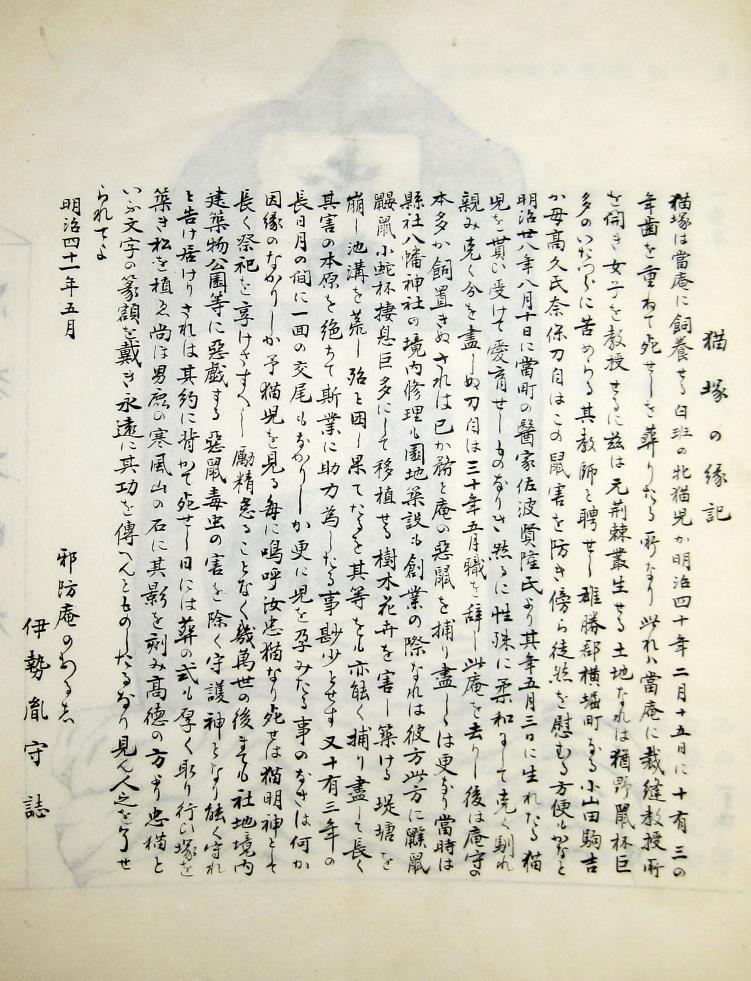 猫塚の縁記
猫塚は當庵に飼養せる白班の牝猫児か明治四十年二月十五日に十有三の
年歯を重ねて死せしを葬りたる所なり此れハ當庵に裁縫教授所
を開き女子を教授せるに茲は元荊棘叢生せる土地なれは猶野鼠杯巨
多のいたつらに苦めらる其教師と聘せし雄勝郡横堀町なる小山田駒吉
か母高久氏奈保刀自はこの鼠害を防き傍ら徒然を慰むる方便もかなと
明治廿八年八月十日に當町の醫家佐波賢隆氏より其年五月三日に生れたる猫
児を貰い受けて愛育せしものなりき然るに性殊に柔和にして克く馴れ
親み克く分を盡しぬ刀自は三十年五月職を辞し此庵を去りし後は庵守の
本多か飼置きぬされは已か務と庵の惡鼠を捕り盡しは更なり當時は
縣社八幡神社の境内修理も園地築設も創業の際なれは彼方此方に鼷鼠
鼹鼠小蛇杯棲息巨多にして移植せる樹木花卉を害し築ける堤塘を
崩し池溝を荒し殆と困し果てたるを其等をも亦能く捕り盡して長く
其害の本原を絶ちて斯業に助力為したる事尠少とせす又十有三年の
長日月の間に一囬の交尾もなかりしか更に児を孕みたる事のなきは何か
因縁のなかりしか予猫児を見る毎に嗚呼汝忠猫なり死せは猫明神として
長く祭祀を享けさすへし励精怠ることなく幾萬世の後までも社地境内
建築物公園等に惡戯する惡鼠毒虫の害を除く守護神となり能く守れ
と告け居けりされは其約に背かて死せし日には葬の式も厚く取り行ひ塚を
築き松を植ゑ尚ほ男鹿の寒風山の石に其影を刻み高徳の方より忠猫と
いふ文字の篆額を戴き永遠に其功を傳へんとものしたるなり見ん人之を了せ
られてよ
明治四十一年五月
邪防庵のあるし
伊勢胤守誌